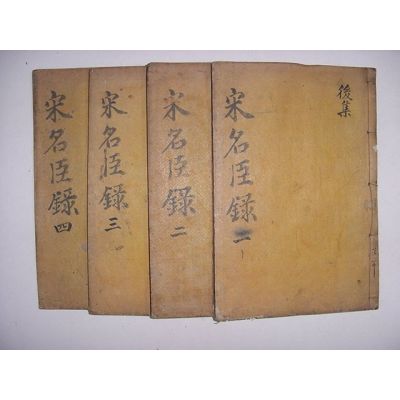 後集
宋名臣録一
宋名臣録二
宋名臣録三
宋名臣録四